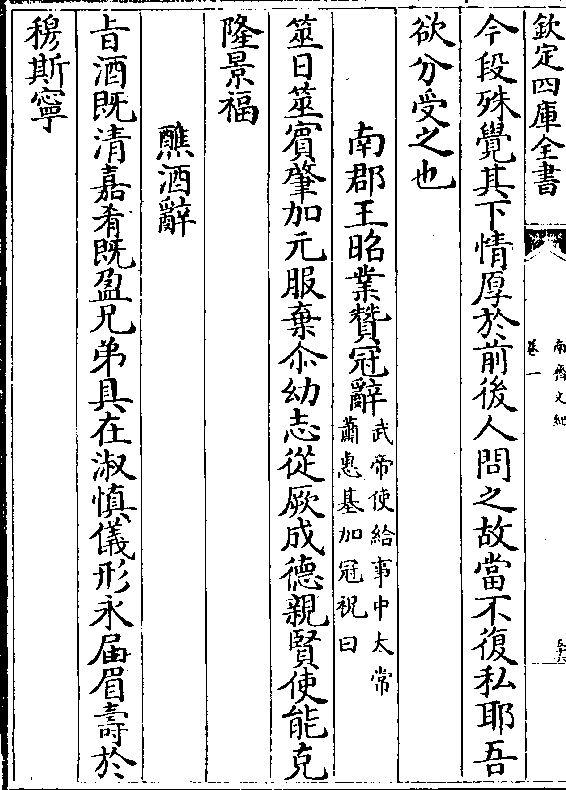 欽定四庫全書
南齊文紀
卷一
今段殊覺其下情厚於前後人問之故當不復私耶吾
欲分受之也
南郡王昭業贊冠辭武帝使給事中太常
蕭惠基加冠祝曰
筮日筮賓肇加元服棄尒幼志從厥成德親賢使能克
隆景福
醮酒辭
㫖酒既清嘉肴既盈兄弟具在淑慎儀形永届眉壽於
穆斯寧